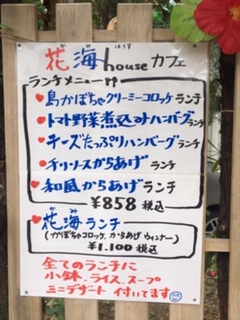 かみ はうす
花海houseカフェ
ランチメニュー
♥島かぼちゃクリーミーコロッケランチ
♥トマト野菜煮込みハンバーグランチ
♥チーズたっぷりハンバーグランチ
♥チリソースからあげランチ
♥和風からあげランチ
¥858 税込
♥花海ランチ
(かぼちゃコロッケ、からあげ、ウィンナー)
¥1,100 税込
全てのランチに
小鉢、ライス、スープ
ミニデザート 付いてます